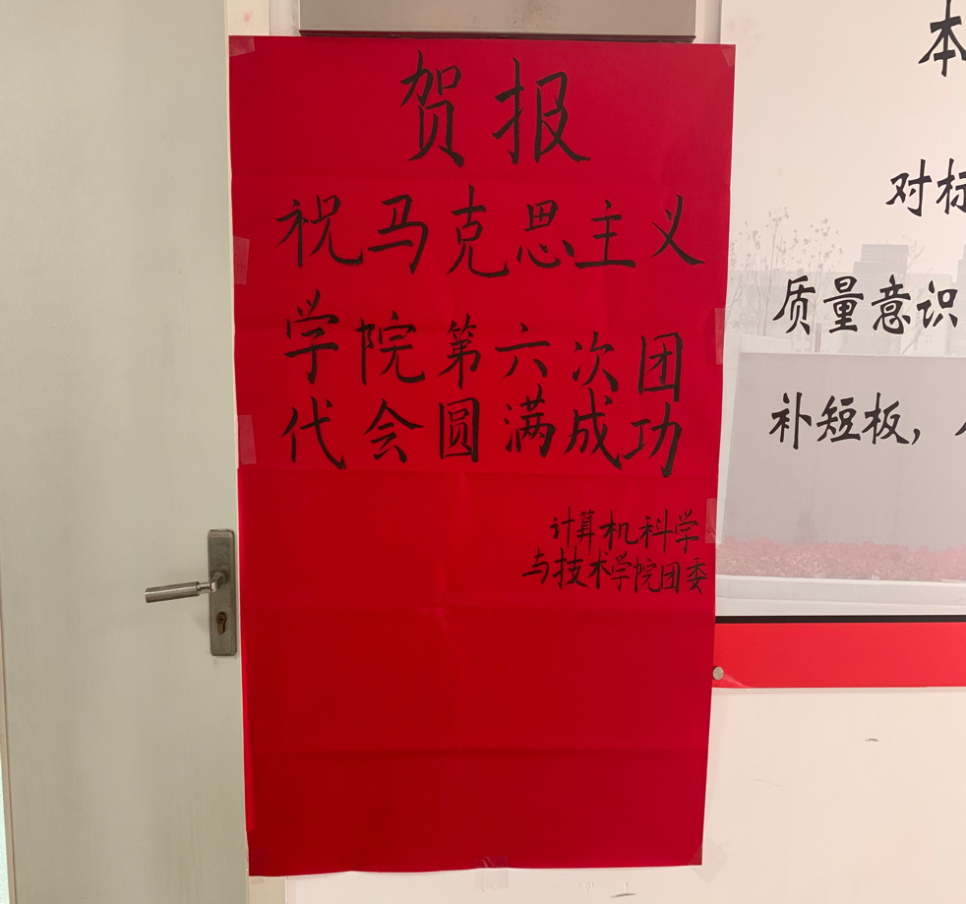 贺报
祝马克思主义
学院第六次团
代会圆满成功
计算机科学
与技术学院团委
本
对标
质量意识
补短板，